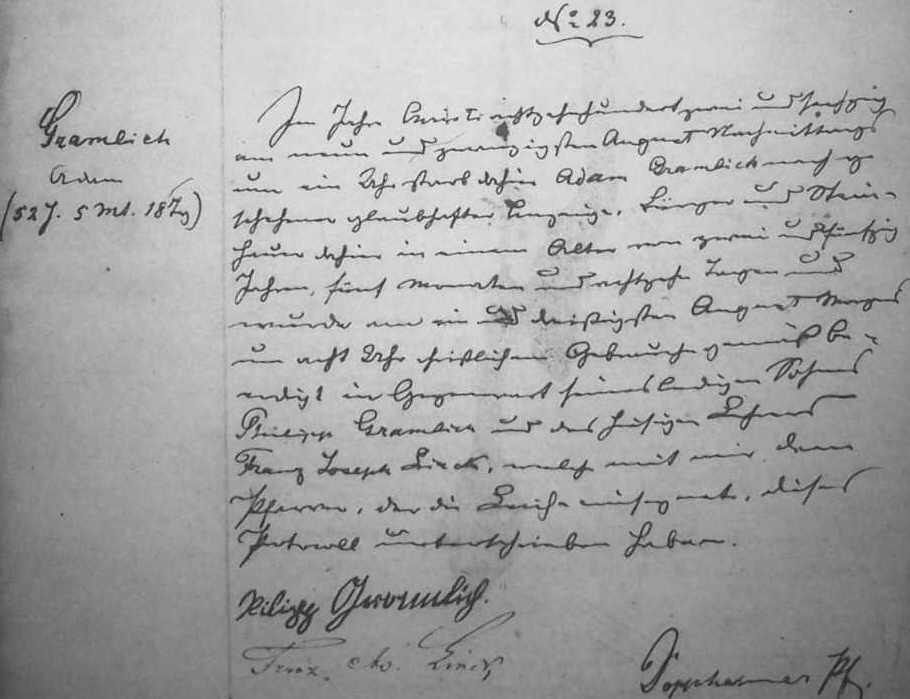 No 23.
Gramlich
Adam
(52 J. 5 Mt. 18 Tg)
Im Jahr Christi achtzehnhundert zwei und sechzig
am neun und zwanzigsten August Nachmittags
um ein Uhr starb dahier Adam Gramlich nach ge-
schehener glaubhafter Anzeige, Bürger und Stein-
hauer dahier in einem Alter von zwei und fünfzig
Jahren, fünf Monaten und achtzehn Tagen und
wurde am ein und dreißigsten August Morgens
um acht Uhr christlichem Gebrauche gemäß be-
erdigt in Gegenwart seines ledigen Sohnes
Philipp Gramlich und des hiesigen Lehrers
Franz Joseph Linck, welche mit mir dem
Pfarrer, der die Leiche einsegnete, dieses
Protocoll unterschrieben haben.
Philipp Gramlich.
Franz Linck
Pf.